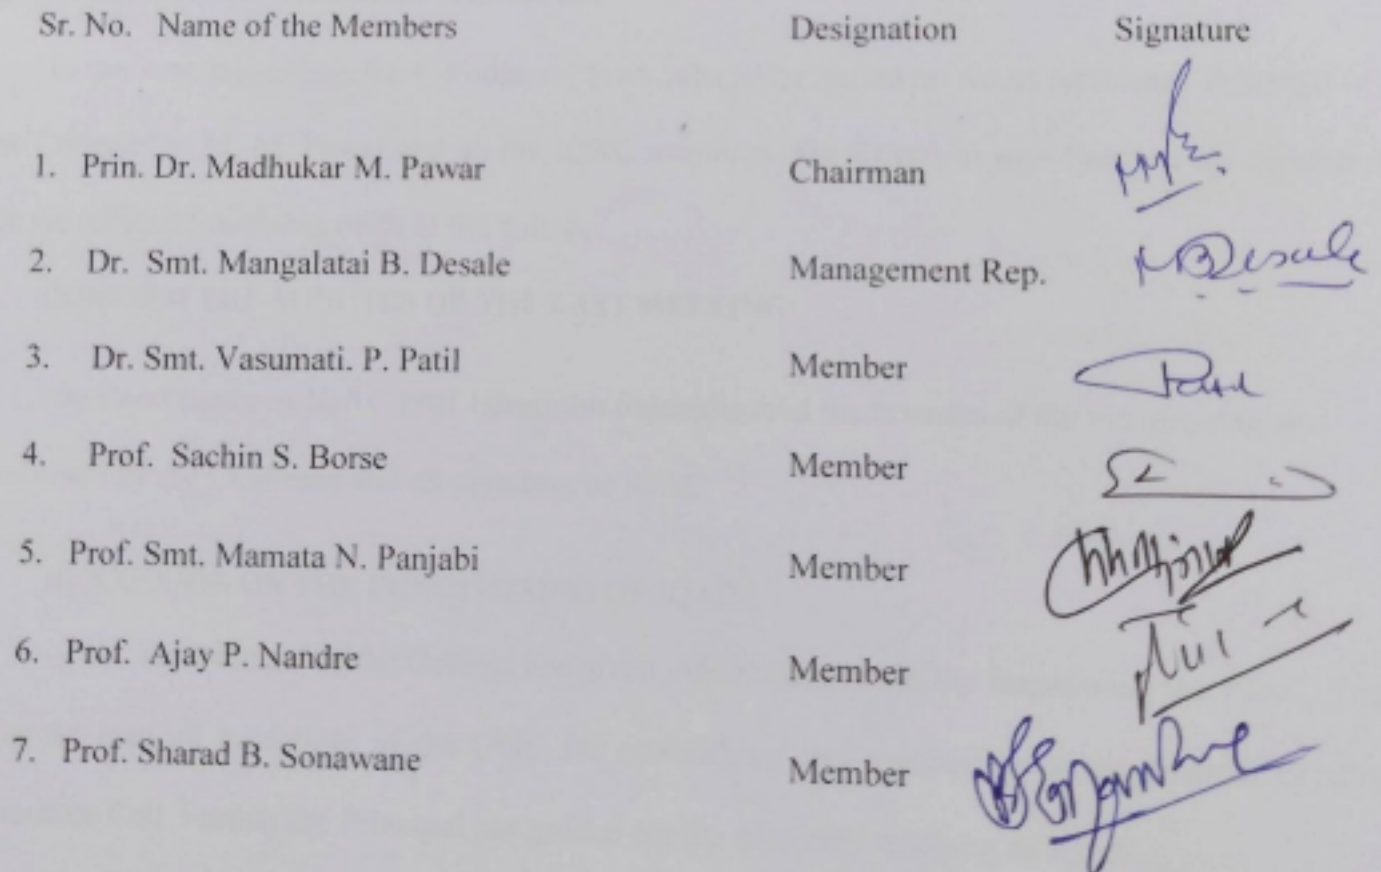 Sr. No. Name of the Members Designation Signature
1. Prin. Dr. Madhukar M. Pawar Chairman
2. Dr. Smt. Mangalatai B. Desale Management Rep. MBDesale
3. Dr. Smt. Vasumati. P. Patil Member
4. Prof. Sachin S. Borse Member
5. Prof. Smt. Mamata N. Panjabi Member
6. Prof. Ajay P. Nandre Member
7. Prof. Sharad B. Sonawane Member